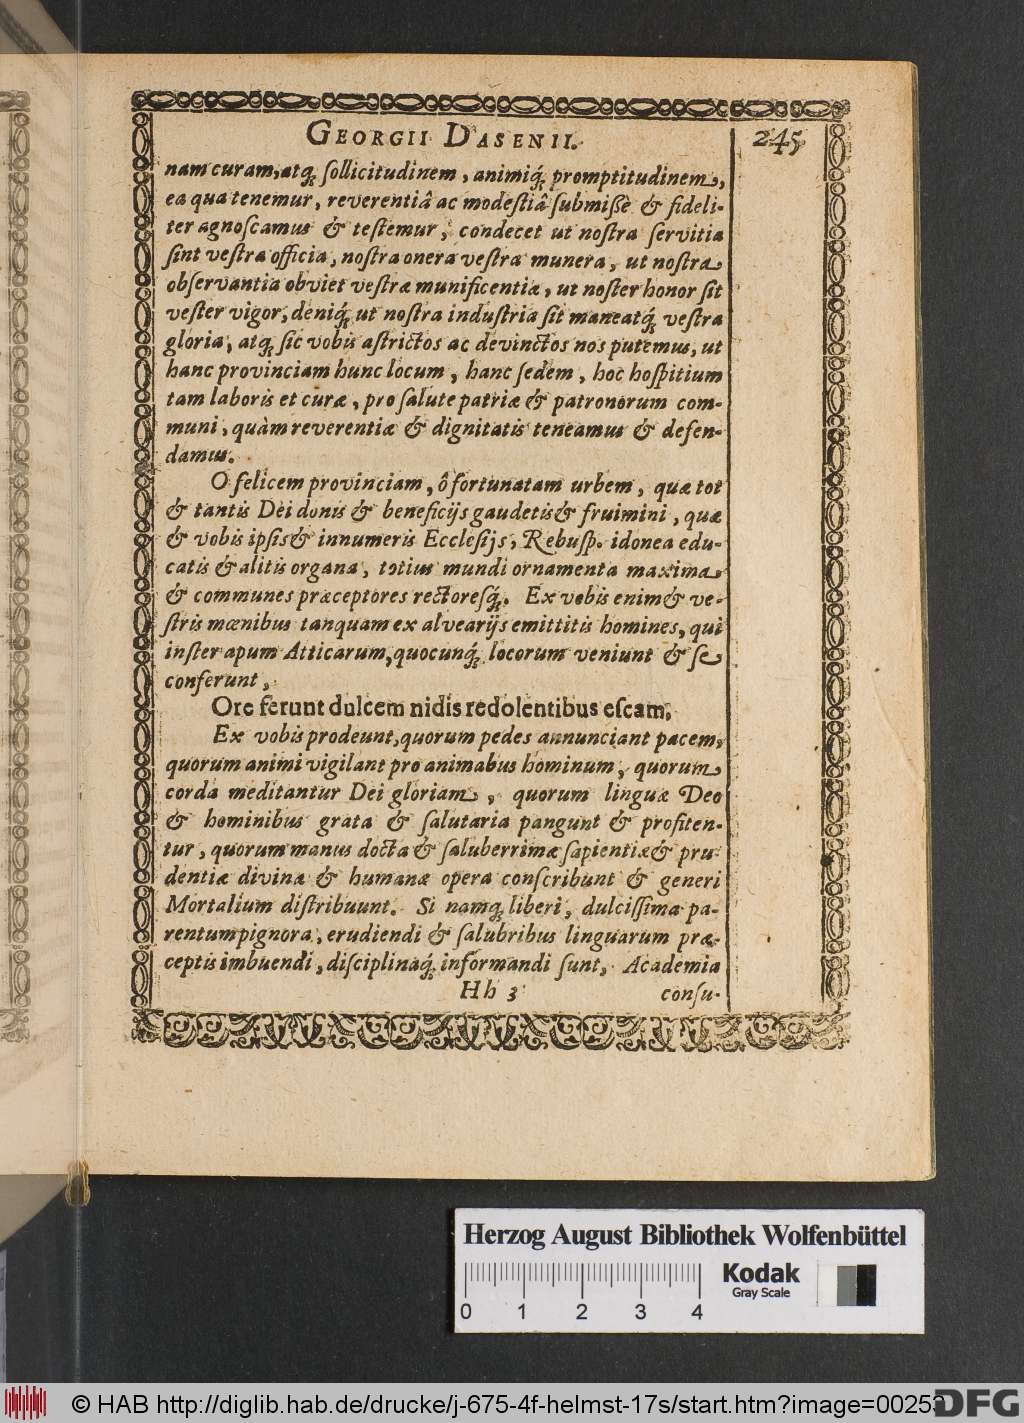 GEORGII DASENII.
245
nam curam, atq́; ſollicitudinem, animiq́; promptitudinem,
ea qua tenemur, reverentiâ ac modeſtiâ ſubmiſſè & fideli-
ter agnoſcamus & teſtemur, condecet ut noſtra ſervitia
ſint veſtra officia, noſtra onera veſtra munera, ut noſtra
obſervantia obviet veſtræ munificentiæ, ut noſter honor ſit
veſter vigor, deniq́; ut noſtra induſtria ſit maneatq́; veſtra
gloria, atq́; ſic vobis aſtrictos ac devinctos nos putemus, ut
hanc provinciam hunc locum, hanc ſedem, hoc hoſpitium
tam laboris et curæ, pro ſalute patriæ & patronorum com-
muni, quàm reverentiæ & dignitatis teneamus & defen-
damus.
O felicem provinciam, ô fortunatam urbem, quæ tot
& tantis Dei donis & beneficijs gaudetis & fruimini, quæ
& vobis ipſis & innumeris Eccleſijs, Rebuſp. idonea edu-
catis & alitis organa, totius mundi ornamenta maxima
& communes præceptores rectoreſq́;. Ex vobis enim & ve-
ſtris mœnibus tanquam ex alvearijs emittitis homines, qui
inſter apum Atticarum, quocunq́; locorum veniunt & ſe
conferunt,
Ore ferunt dulcem nidis redolentibus eſcam,
Ex vobis prodeunt, quorum pedes annunciant pacem,
quorum animi vigilant pro animabus hominum, quorum
corda meditantur Dei gloriam, quorum linguæ Deo
& hominibus grata & ſalutaria pangunt & profiten-
tur, quorum manus docta & ſaluberrimæ ſapientiæ & pru-
dentiæ divinæ & humanæ opera conſcribunt & generi
Mortalium diſtribuunt. Si namq́; liberi, dulciſſima pa-
rentum pignora, erudiendi & ſalubribus linguarum præ-
ceptis imbuendi, diſciplinaq́; informandi ſunt, Academia
Hh 3
conſu-
Herzog August Bibliothek Wolfenbüttel
Kodak
Gray Scale
0 1 2 3 4
© HAB http://diglib.hab.de/drucke/j-675-4f-helmst-17s/start.htm?image=00253
DFG